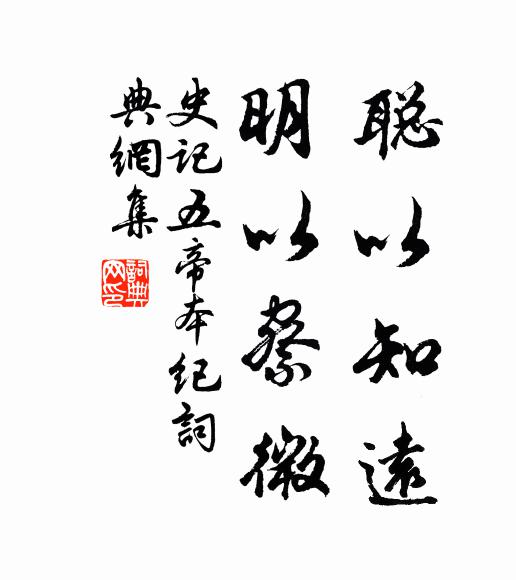 聪以知遠
明以察微
史记五帝本纪詞
典網集
詞典网印